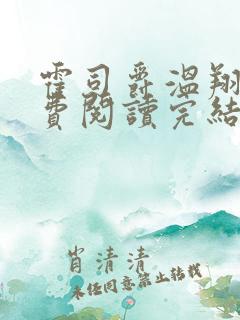 霍司爵温翔
費閱讀完結
肖清清
未经同意禁止转载